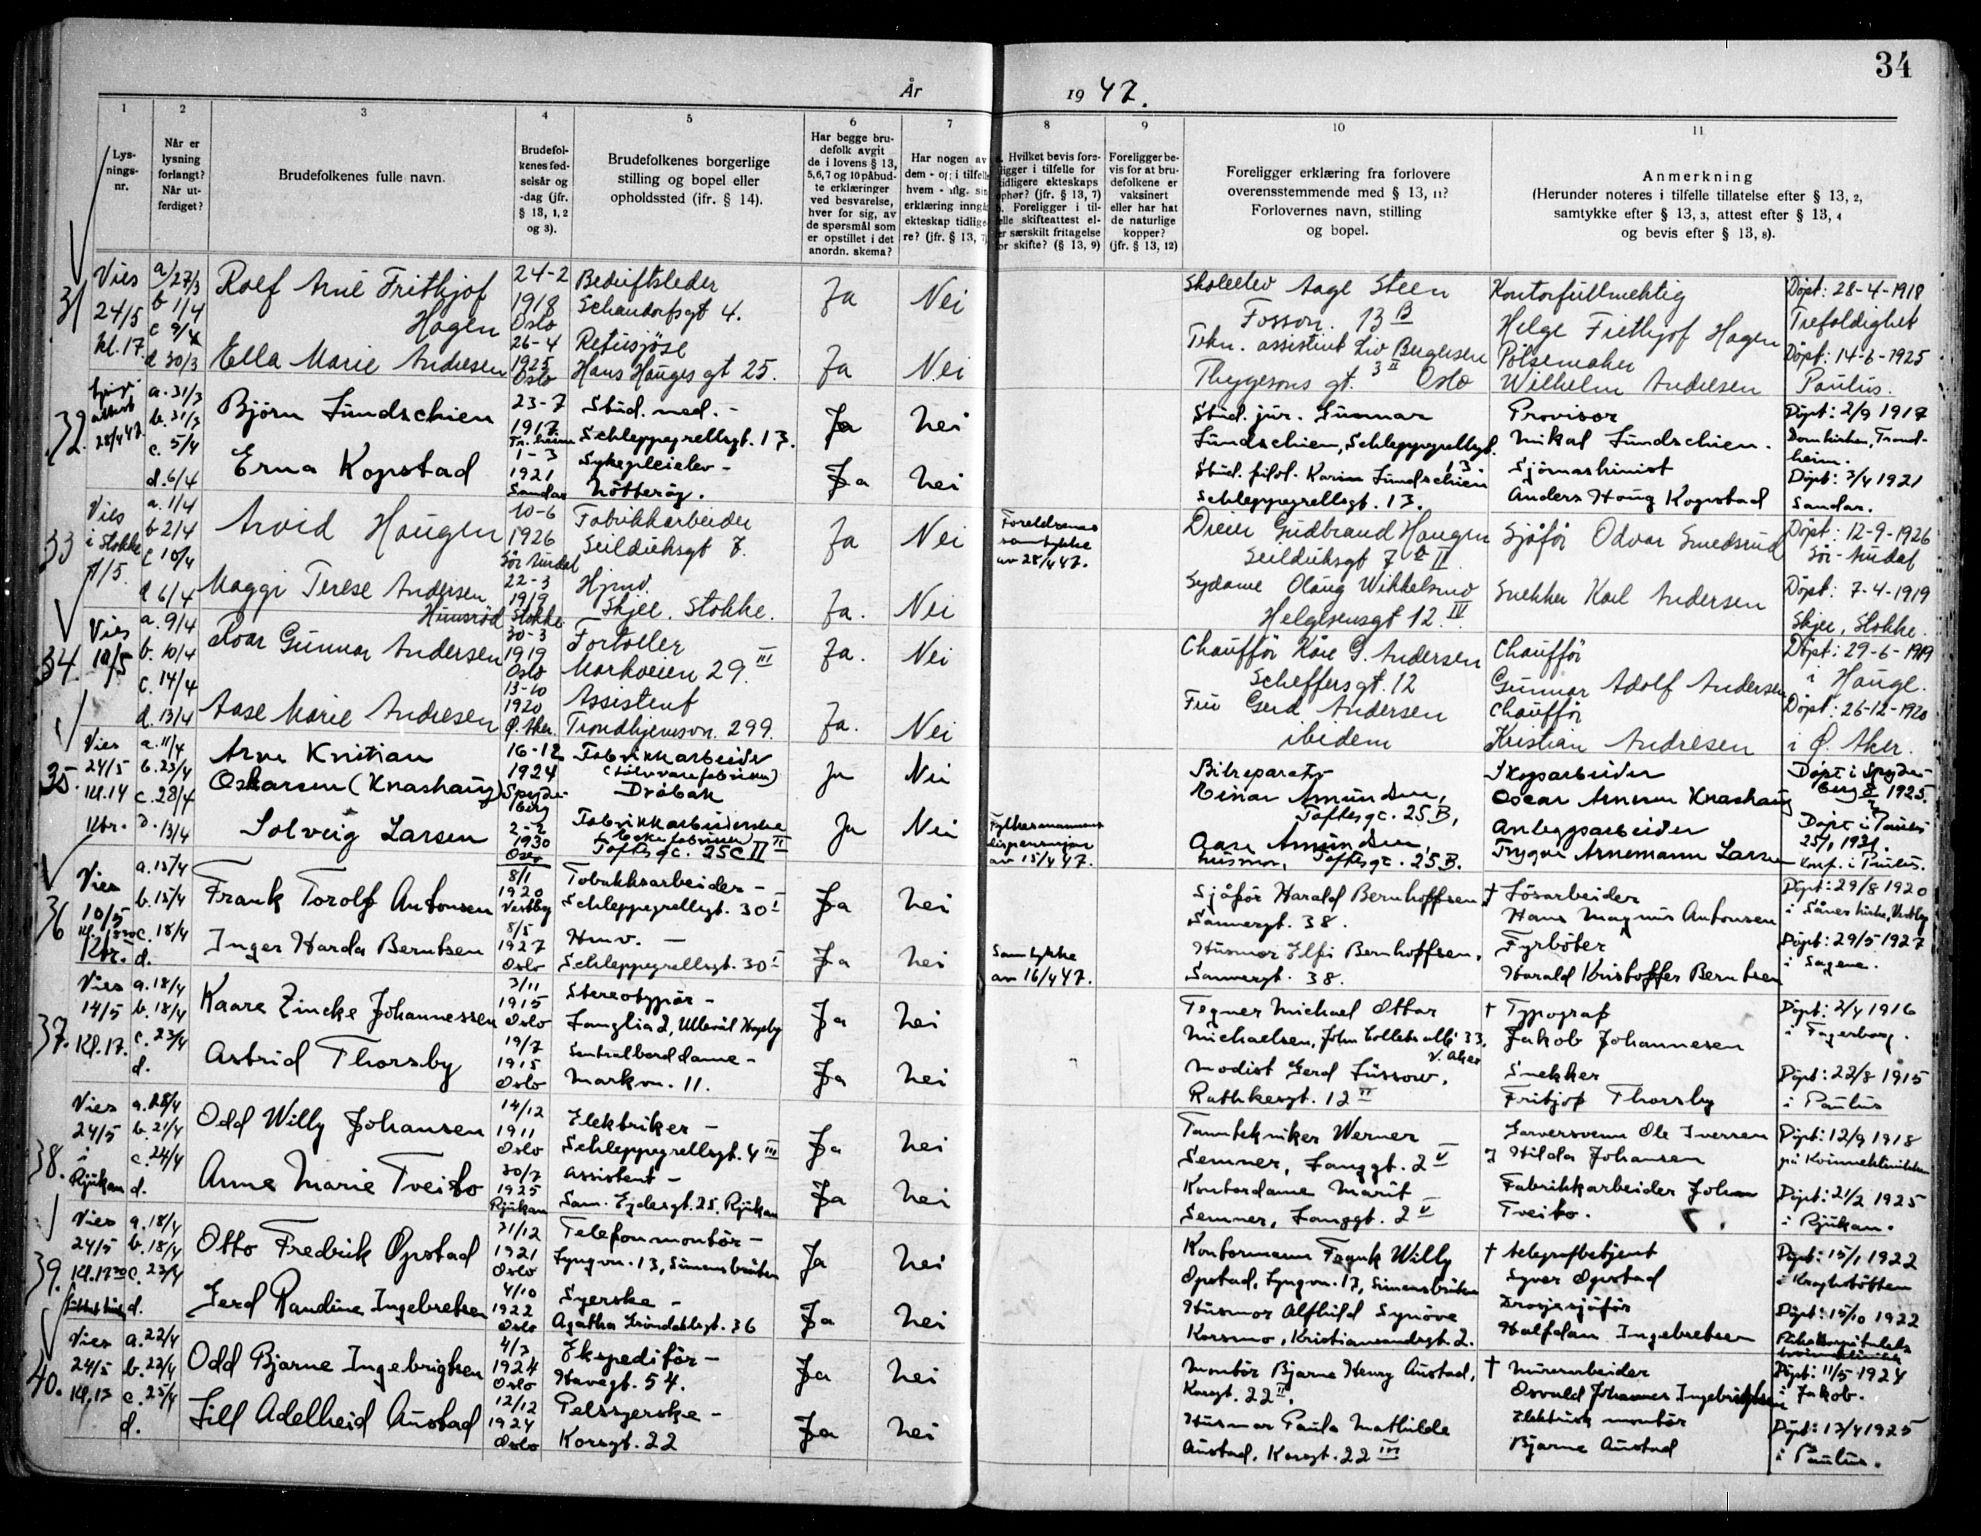 34
År 1947.
1 2 3 4 5 6 7 8 9 10 11
Lys-
nings-
nr.
Når er
lysning
forlangt?
Når ut-
ferdiget?
Brudefolkenes fulle navn.
Brudefol-
kenes fød-
selsår og
-dag (jfr.
§ 13, 1, 2
og 3).
Brudefolkenes borgerlige
stilling og bopel eller
opholdssted (ifr. § 14).
Har begge bru-
defolk avgit
de i lovens § 13,
5,6,7 og 10 påbud-
te erklæringer
ved besvarelse,
hver for sig, av
de spørsmål som
er opstillet i det
anordn. skema?
Har nogen av
dem - og i tilfelle
hvem -
erklæring inngå
ekteskap tidlige-
re? (jfr. § 13, 7)
Hvilket bevis fore-
ligger i tilfelle for
tidligere ekteskaps
ophør? (jfr. § 13, 7)
b. Foreligger i til-
felle skifteattest el-
er særskilt fritagelse
for skifte? (§ 13, 9)
Foreligger be-
vis for at bru-
defolkene er
vaksinert
eller har hat
de naturlige
kopper?
(jfr. § 13, 12)
Foreligger erklæring fra forlovere
overensstemmende med § 13, 11?
Forlovernes navn, stilling
og bopel.
Anmerkning
(Herunder noteres i tilfelle tillatelse efter § 13, 2,
samtykke efter § 13, 3, attest efter § 13, 4
og bevis efter § 13, 8).
31
Vies
24/5
kl. 17.
a/27/3
b 1/4
c 9/4
d 30/3
Rolf Arne Frithjof
Hagen
24-2
1918
Oslo
Bedriftsleder
Schandorfsgt 4.
Ja Nei
Skoleelev Aage Steen
Fosson. 13 B
Kontorfullmektig
Helge Frithjof Hagen
Døpt: 28-4-1918
Trefoldighet
Ella Marie Andresen
26-4
1925
Oslo
Retusjøse
Hans Hauges gt 25.
Ja Nei
Tekn. assistent Liv Bergersen
Thygesons gt. 3 II Oslo
Pølsemaker
Wilhelm Andresen
Døpt: 14-6-1925
Paulus.
32.
attest
28/4 47.
a. 31/3
b. 31/3
c. 5/4
d. 6/4
Bjørn Lundschien
23-7
1917
Tr.heim
Stud. med. -
Schleppegrellsgt. 13.
Ja Nei
Stud. jur. Gunnar
Lundschien, Schleppegrellsgt.
13.
Provisor
Mikal Lundschien.
Døpt: 2/9 1917
Domkirken, Trond-
heim.
Erna Kopstad
1-3
1921
Sandar
Sykepleielev -
Nøtterøy.
Ja Nei
Stud. filol. Karin Lundschien
Schleppegrellsgt. 13.
Sjömaskinist
Anders Haug Kopstad
Døpt: 3/4 1921
Sandar.
33
Vies
i Stokke
/5.
a. 1/4
b 2/4
c 10/4
d 6/4
Arvid Haugen
10-6
1926
Sør Aurdal
Fabrikkarbeider
Seilduksgt 7.
Ja Nei
Foreldrenes
samtykke
av 28/4 47.
Dreier Gudbrand Haugen
Seilduksgt 7 II
Sjåfør Odvar Smedsrud
Døpt: 12-9-1926
Sør-Aurdal
Maggi Terese Andersen
Himsrød
22-3
1919
Stokke
Hjmv.
Skjee, Stokke.
Ja. Nei
Sydame Olaug Wikkelsmo
Helgesensgt 12 IV
Snekker Karl Andersen
Døpt: 7-4-1919
Skjee, Stokke.
34.
Vies
10/5
a. 9/4
b. 10/4
c. 14/4
d. 13/4
Roar Gunnar Andersen
30-3
1919
Oslo
Fortoller
Markveien 29. III
Ja. Nei
Chauffør Kåre G. Andersen
Scheffersgt. 12
Chauffør
Gunnar Adolf Andersen
Døpt: 29-6-1919
i Hauge.
Aase Marie Andresen
13-10
1920
Ø. Aker.
Assistent
Trondhjemsvn. 299.
Ja. Nei
Fru Gerd Andersen
ibidem
Chauffør
Kristian Andresen
Døpt: 26-12-1920
i Ø. Aker.
35.
Vies
24/5
kl. 14
a. 11/4
b. 23/4
c. 28/4
d. 13/4
Arne Kristian
Oskarsen (Knashaug)
16-12
1924
Spyde-
berg
Fabrikkarbeider
(Sølvvarefabrikken)
Drøbak
Ja Nei
Bilreparatør
Einar Amundsen,
Toftesgt. 25 B,
Skogsarbeider
Oscar Arnesen Knashaug
Døpt i Spyde-
berg 1925.
Solveig Larsen
2-2
1930
Oslo
Fabrikkarbeiderske
Toftesgt. 25 C II
Ja Nei
Fylkesmannens
dispensasjon
av 15/4 47.
Aase Amundsen,
husmor, Toftesgt. 25 B.
Anleggsarbeider
Trygve Arnemann Larsen
Døpt i Paulus
25/1 1931.
Konf. i Paulus.
36
Vies
10/5
a. 15/4
b. 15/4
c. 18/4
d.
Frank Torolf Antonsen
8/1
1920
Vestby
Tobakksarbeider -
Schleppegrellsgt. 30 I
Ja Nei
Sjåfør Harald Bernhoffsen,
Sannergt. 38.
† Løsarbeider
Hans Magnus Antonsen
Døpt: 29/8 1920
i Såner kirke, Vestby
Inger Harda Berntsen
8/5
1927
Oslo
Hmv. -
Schleppegrellsgt. 30 I
Ja Nei
Samtykke
av 16/4 47.
Husmor Elfi Bernhoffsen,
Sannergt. 38.
Fyrbøter
Harald Kristoffer Berntsen
Døpt: 29/5 1927
i Sagene.
37.
Vies
14/5
Kl. 17.
a. 18/4
b. 18/4
c. 23/4
d.
Kaare Zincke Johannessen
3/11
1915
Oslo
Stereotypør -
Langlia 2, Ullevål Hageby
Ja Nei
Tegner Michael Ottar
Michaelsen, John Colletts allé 33,
V. Aker
† Typograf
Jakob Johannesen
Døpt: 2/4 1916
i Fagerborg.
Astrid Thorsby
19/7
1915
Oslo
Sentralborddame -
Markvn. 11.
Ja Nei
Modist Gerd Lüssow,
Rathkesgt. 12 II
Snekker
Fritjof Thorsby
Døpt: 22/8 1915
i Paulus
38.
Vies
24/5
i
Rjukan
a. 28/4
b. 21/4
c. 24/4
d.
Odd Willy Johansen
14/12
1911
Oslo
Elektriker -
Schleppegrellsgt. 4 III
Ja Nei
Tanntekniker Werner
Semner, Langgt. 2 V
Garversvenn Ole Iversen
og Hilda Johansen
Døpt: 12/9 1918
på Kvinneklinikken
Anne Marie Tveito
30/7
1925
Rjukan
Assistent -
Sam. Eydesgt. 25, Rjukan
Ja Nei
Kontordame Marit
Semner, Langgt. 2 V
Fabrikkarbeider Johan
Tveito.
Døpt: 21/2 1925
i Rjukan.
39.
Vies
24/5
Kl. 17 30
a. 18/4
b. 18/4
c. 23/4
d.
Otto Fredrik Opstad
31/12
1921
Oslo
Telefonmontør -
Lyngvn. 13, Simensbråten
Ja Nei
Kontormann Frank Willy
Opstad, Lyngvn. 13, Simensbråten
† Telegrafbetjent
Syver Opstad
Døpt: 15/1 1922
i Kroghstøtten
Gerd Randine Ingebretsen
4/10
1922
Oslo
Syerske -
Agatha Grøndahlsgt. 36
Ja Nei
Husmor Alfhild Synøve
Korsmo, Kristiansandsgt. 2.
Drosjesjåfør
Halfdan Ingebretsen
Døpt: 15/10 1922
40.
Vies
24/5
Kl. 17
a. 22/4
b. 22/4
c. 25/4
d.
Odd Bjarne Ingebrigtsen
4/3
1924
Oslo
Ekspeditør -
Havegt. 54.
Ja Nei
Montør Bjarne Henry Austad,
Korsgt. 22 II,
† Murerarbeider
Osvald Johannes Ingebrigtsen
Døpt: 11/5 1924
i Jakob.
Lill Adelheid Austad
12/12
1924
Oslo
Pelssyerske -
Korsgt. 22
Ja Nei
Husmor Paula Mathilde
Austad, Korsgt. 22 III
Elektrisk montør
Bjarne Austad
Døpt: 13/4 1925
i Paulus.